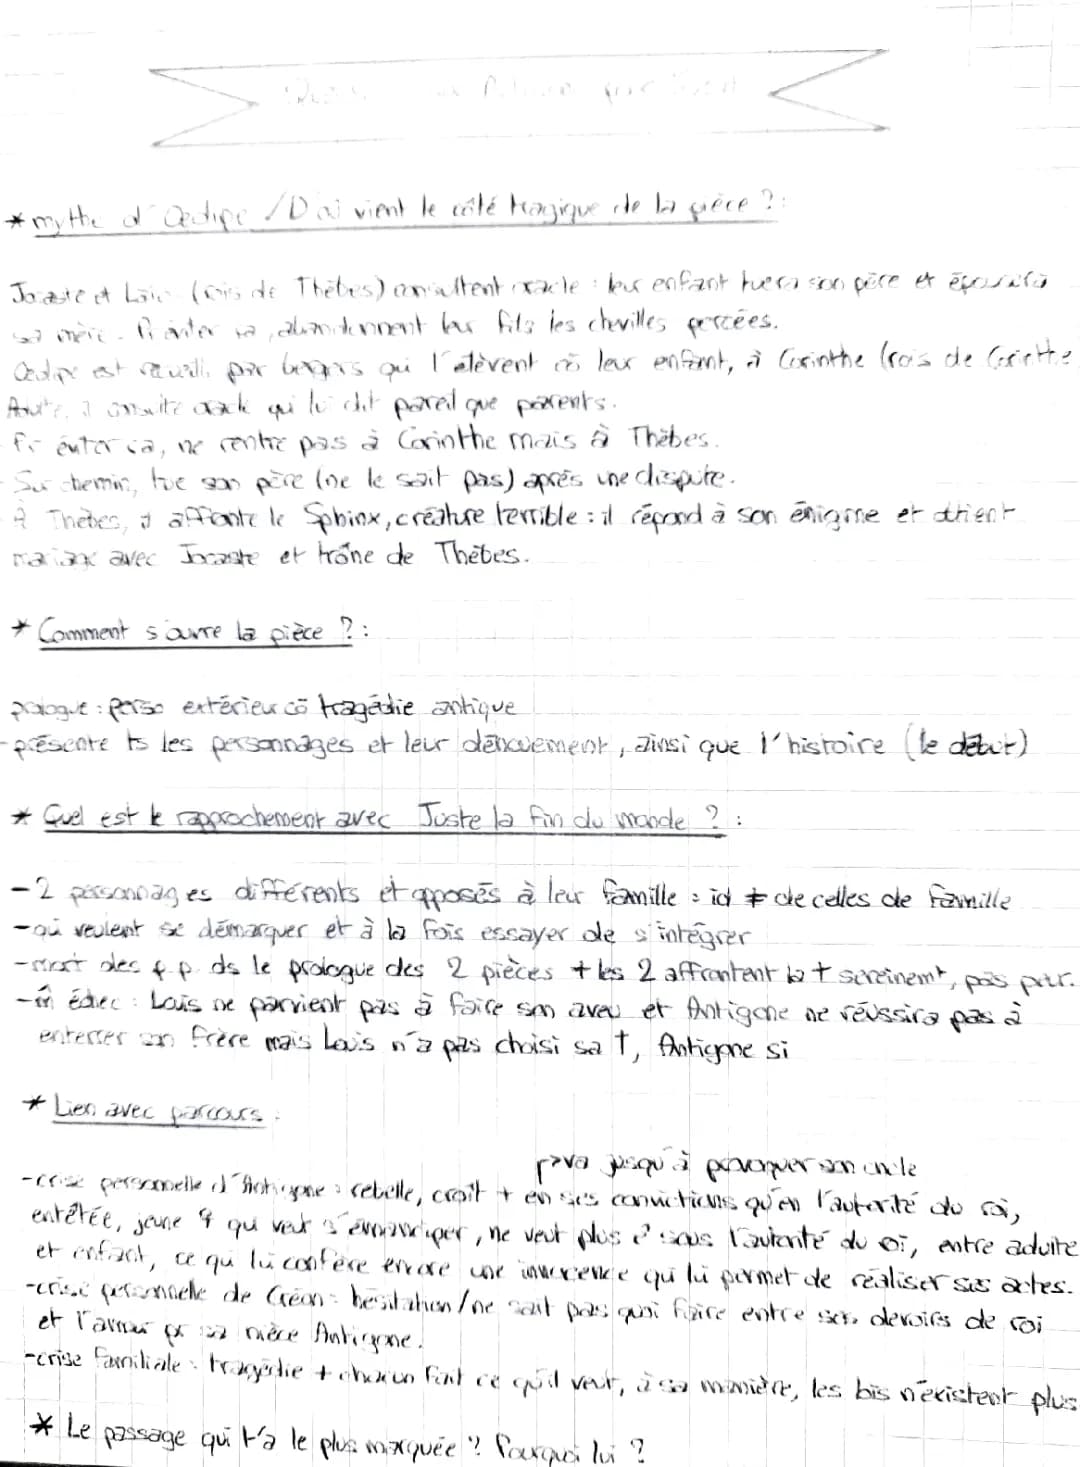 * mythe d'Oedipe / D'où vient le côté tragique de la pièce ? :
Jocaste et Laïos (rois de Thèbes) consultent oracle : leur enfant tuera son père et épousera
sa mère. Pr éviter ça, abandonnent leur fils les chevilles percées.
Oedipe est recueilli par bergers qui l'élèvent cõ leur enfant, à Corinthe (rois de Corinthe
Adulte, il consulte oracle qui lui dit pareil que parents.
Pr éviter ça, ne rentre pas à Corinthe mais à Thèbes.
Sur chemin, tue son père (ne le sait pas) après une dispute.
À Thèbes, il affronte le Sphinx, créature terrible : il répond à son énigme et obtient
mariage avec Jocaste et trône de Thèbes.
* Comment s'ouvre la pièce ? :
prologue : perso extérieur cõ tragédie antique
- présente ts les personnages et leur dénouement, ainsi que l'histoire (le début)
* Quel est le rapprochement avec Juste la fin du monde ? :
- 2 personnages différents et opposés à leur famille : id ≠ de celles de famille
- qui veulent se démarquer et à la fois essayer de s'intégrer
- mort des p.p. ds le prologue des 2 pièces + les 2 affrontent la † sereinemt, pas peur.
- m̂ échec : Louis ne parvient pas à faire son aveu et Antigone ne réussira pas à
enterrer son frère mais Louis n'a pas choisi sa †, Antigone si
* Lien avec parcours :
va jusqu'à provoquer son oncle
- crise personnelle d'Antigone : rebelle, croit + en ses convictions qu'en l'autorité du roi,
entêtée, jeune qui veut s'émanciper, ne veut plus sous l'autorité du roi, entre adulte
et enfant, ce qui lui confère encore une innocence qui lui permet de réaliser ses actes.
- crise personnelle de Créon : hésitation / ne sait pas quoi faire entre ses devoirs de roi
et l'amour pr sa nièce Antigone.
- crise familiale : tragédie + chacun fait ce qu'il veut, à sa manière, les lois n'existent plus
* Le passage qui t'a le plus marquée ? Pourquoi lui ?